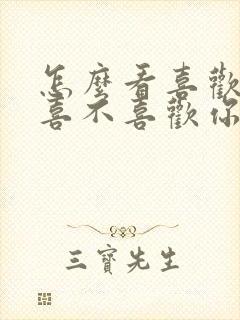 怎麼看喜歡
喜不喜歡你
三寶先生